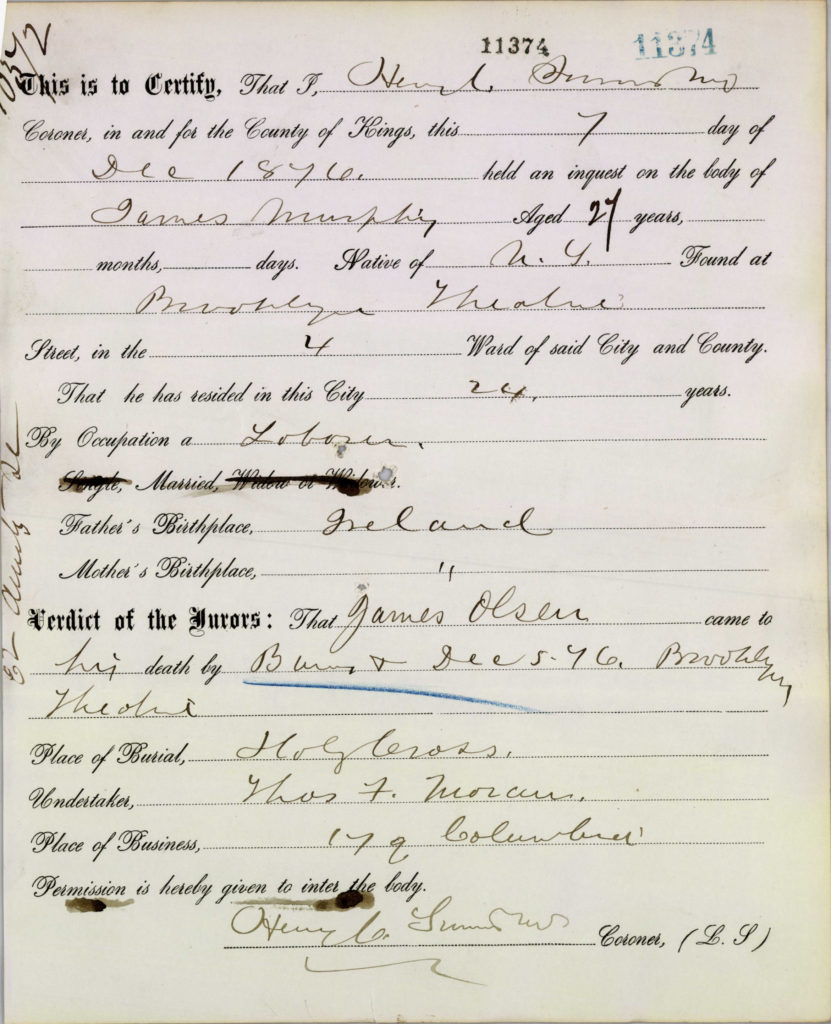 11374 11374
This is to Certify, That I, Henry C. Simms MD
Coroner, in and for the County of Kings, this 7 day of
Dec 1876. held an inquest on the body of
James Murphy Aged 27 years,
months, days. Native of N. Y. Found at
Brooklyn Theatre
Street, in the 4 Ward of said City and County.
That he has resided in this City 24. years.
By Occupation a Laborer.
Single, Married, Widow or Widower.
Father's Birthplace, Ireland
Mother's Birthplace, "
Verdict of the Jurors: That James Olsen came to
his death by Burns Dec 5-76. Brooklyn
Theatre
Place of Burial, Holy Cross.
Undertaker, Thos F. Moran.
Place of Business, 179 Columbia
Permission is hereby given to inter the body.
Henry C. Simms MD Coroner, (L. S)